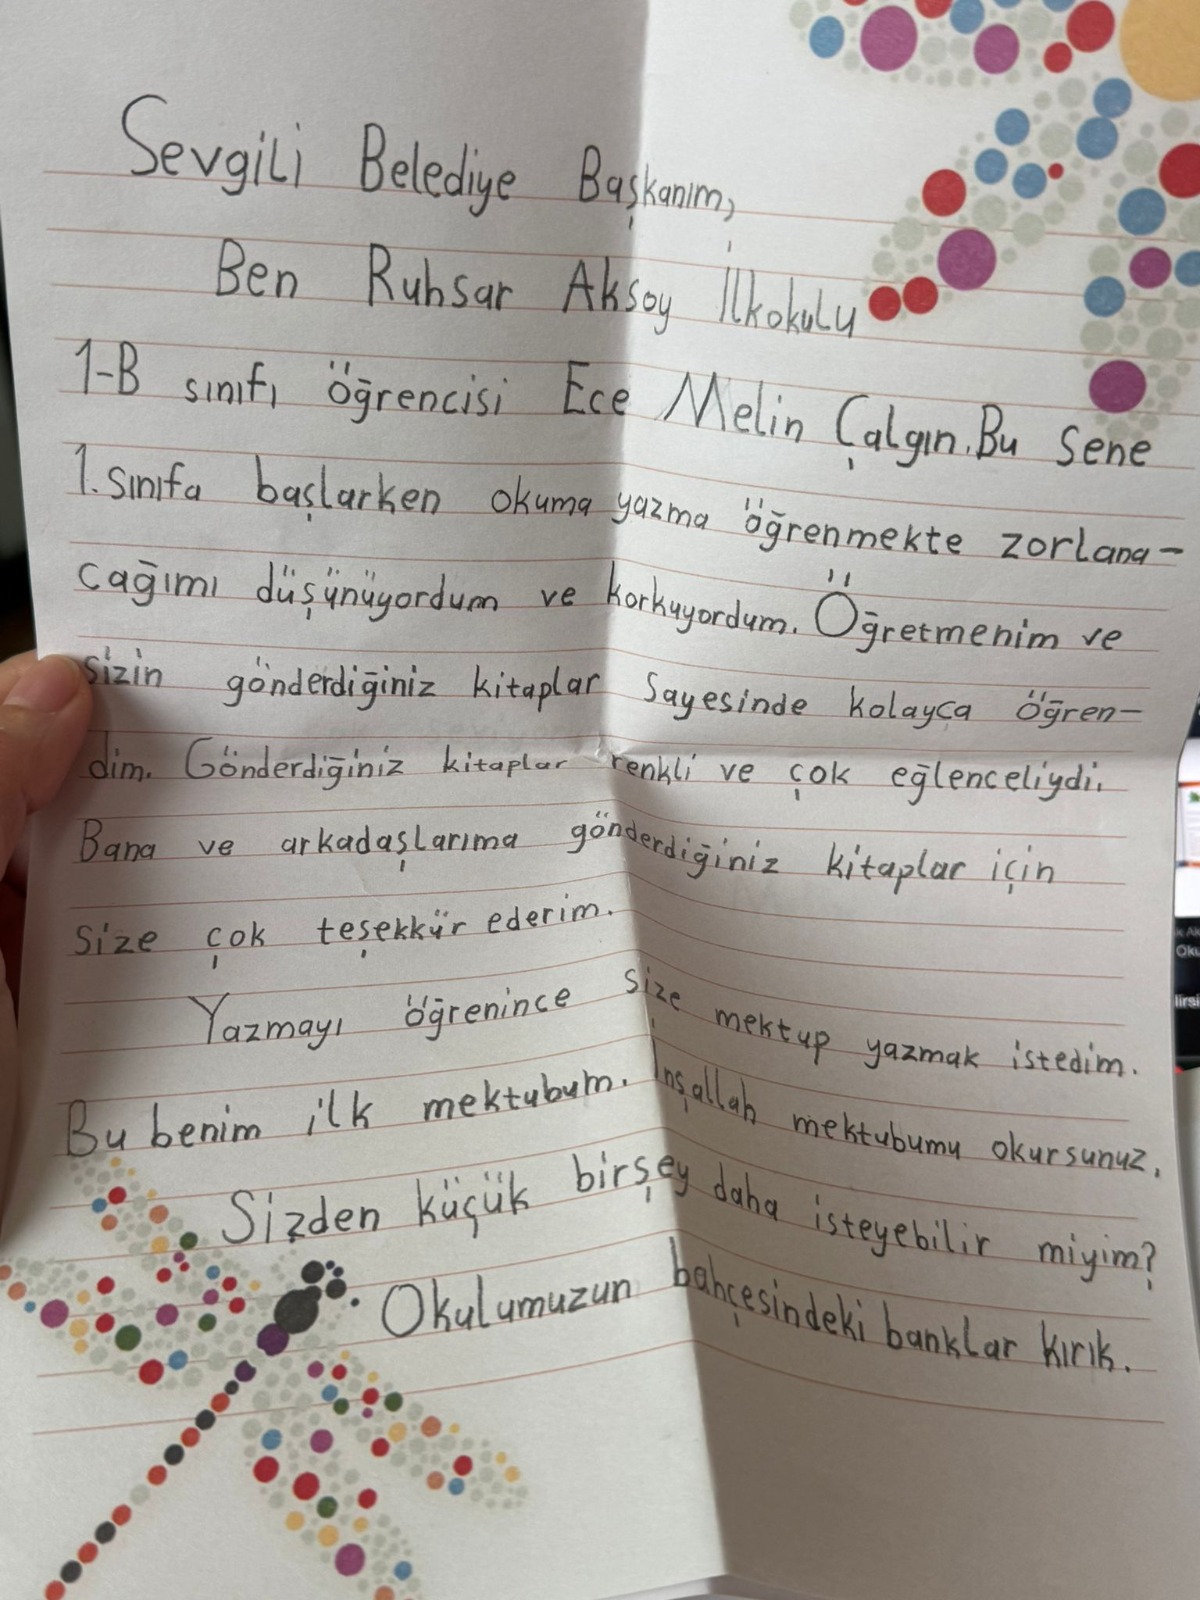 Sevgili Belediye Başkanım,
Ben Ruhsar Aksoy İlkokulu
1-B sınıfı öğrencisi Ece Melin Çalgın. Bu sene
1. sınıfa başlarken okuma yazma öğrenmekte zorlana-
cağımı düşünüyordum ve korkuyordum. Öğretmenim ve
sizin gönderdiğiniz kitaplar sayesinde kolayca öğren-
dim. Gönderdiğiniz kitaplar renkli ve çok eğlenceliydi.
Bana ve arkadaşlarıma gönderdiğiniz kitaplar için
size çok teşekkür ederim.
Yazmayı öğrenince size mektup yazmak istedim.
Bu benim ilk mektubum. İnşallah mektubumu okursunuz.
Sizden küçük birşey daha isteyebilir miyim?
Okulumuzun bahçesindeki banklar kırık.